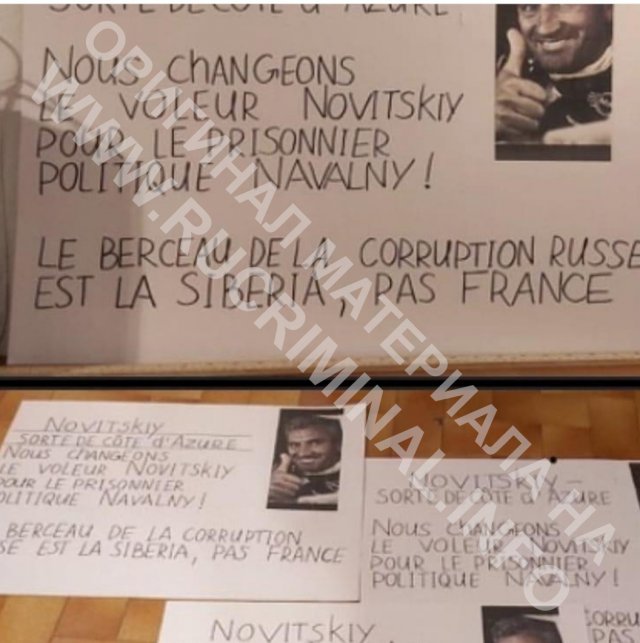 SORTE DE CÔTE d'AZURE
NOUS ChANGEONS
LE VOLEUR NOVITSKIY
POUR LE PRISONNIER
POLITIQUE NAVALNY!
LE BERCEAU DE LA CORRUPTION RUSSE
EST LA SIBERIA, PAS FRANCE
NOVITSKIY
SORTE DE CÔTE d'AZURE
NOUS ChANGEONS
LE VOLEUR NOVITSKIY
POUR LE PRISONNIER
POLITIQUE NAVALNY!
BERCEAU DE LA CORRUPTION
SE EST LA SIBERIA, PAS FRANCE
NOVITSKIY –
SORTE DE CÔTE d'AZURE
NOUS ChANGEONS
LE VOLEUR NOVITSKIY
POUR LE PRISONNIER
POLITIQUE NAVALNY!
CORRU
PA
NOVITSKIY
ОРИГИНАЛ МАТЕРИАЛА НА
WWW.RUCRIMINAL.INFO